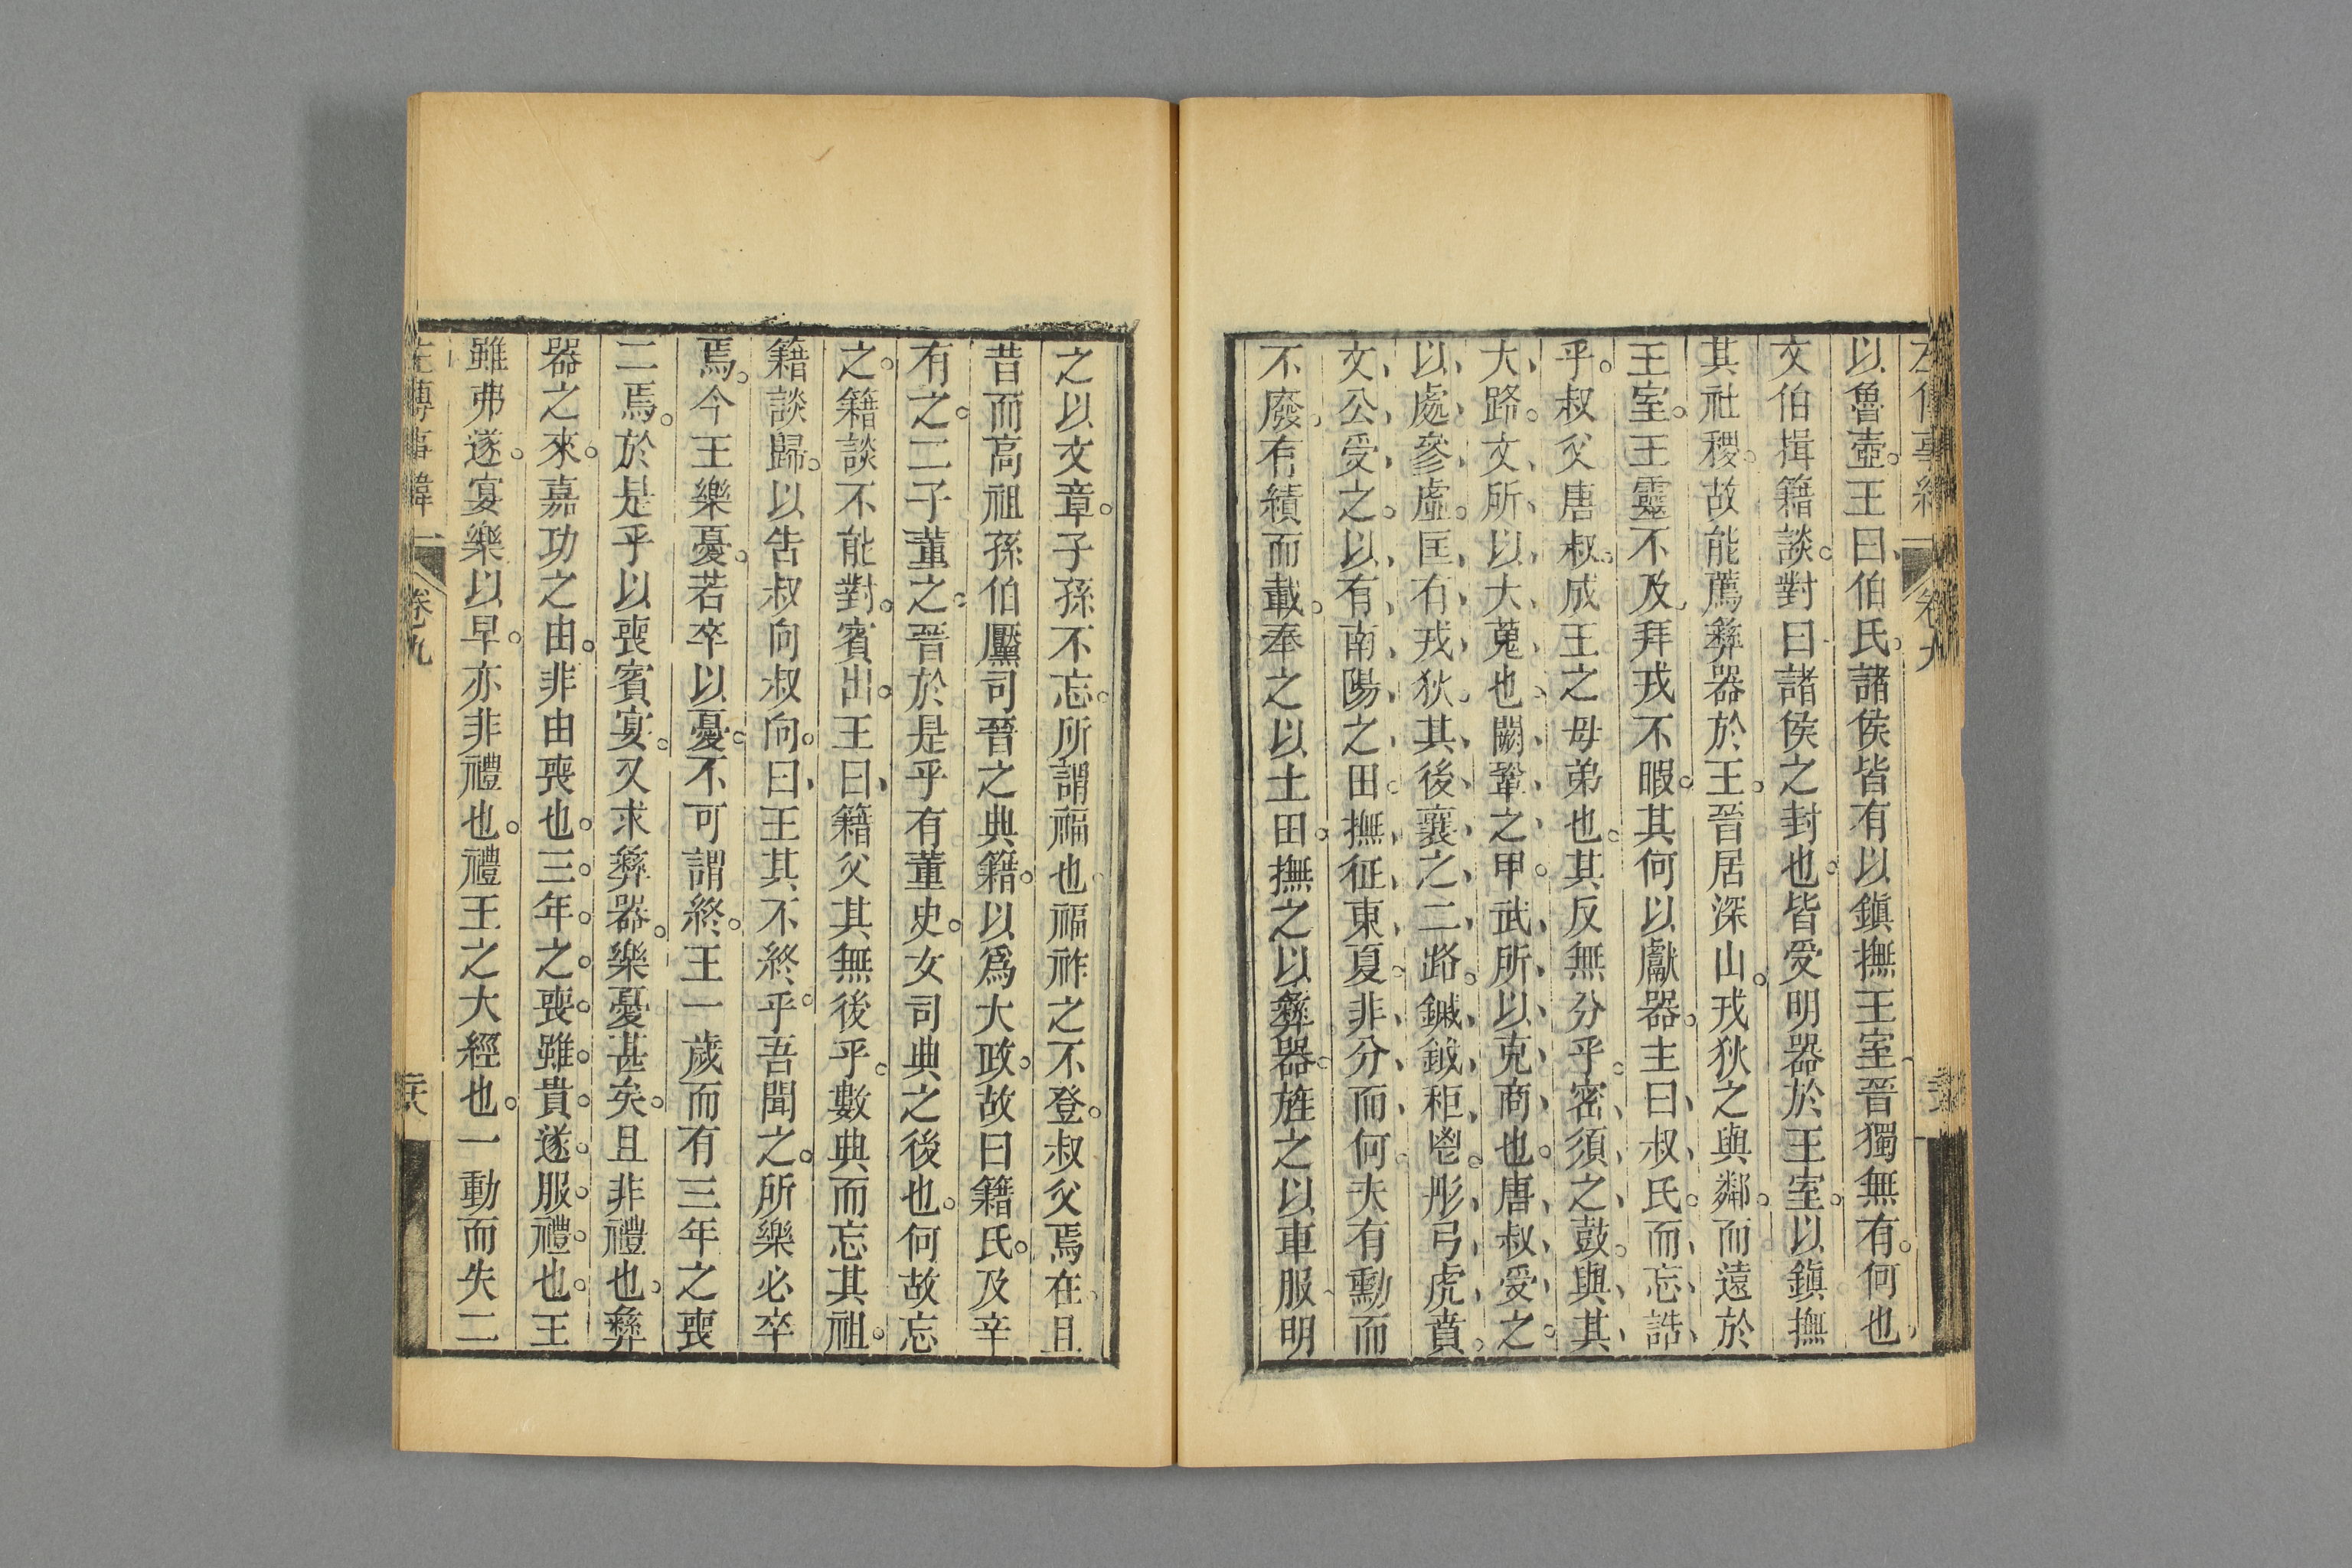 左傳事緯
卷九
以魯壺王曰伯氏諸侯皆有以鎭撫王室晉獨無有何也
文伯揖籍談對曰諸侯之封也皆受明器於王室以鎭撫
其社稷故能薦彝器於王晉居深山戎狄之與鄰而遠於
王室王靈不及拜戎不暇其何以獻器王曰叔氏而忘諸
乎叔父唐叔成王之母弟也其反無分乎密須之鼓與其
大路文所以大蒐也闕鞏之甲武所以克商也唐叔受之
以處參虛匡有戎狄其後襄之二路鏚鉞秬鬯彤弓虎賁
文公受之以有南陽之田撫征東夏非分而何夫有勳而
不廢有績而載奉之以土田撫之以彝器旌之以車服明
之以文章子孫不忘所謂福也福祚之不登叔父焉在且
昔而高祖孫伯黶司晉之典籍以爲大政故曰籍氏及辛
有之二子董之晉於是乎有董史女司典之後也何故忘
之籍談不能對賓出王曰籍父其無後乎數典而忘其祖
籍談歸以告叔向叔向曰王其不終乎吾聞之所樂必卒
焉今王樂憂若卒以憂不可謂終王一歲而有三年之喪
二焉於是乎以喪賓宴又求彝器樂憂甚矣且非禮也彝
器之來嘉功之由非由喪也三年之喪雖貴遂服禮也王
雖弗遂宴樂以早亦非禮也禮王之大經也一動而失二
左傳事緯
卷九